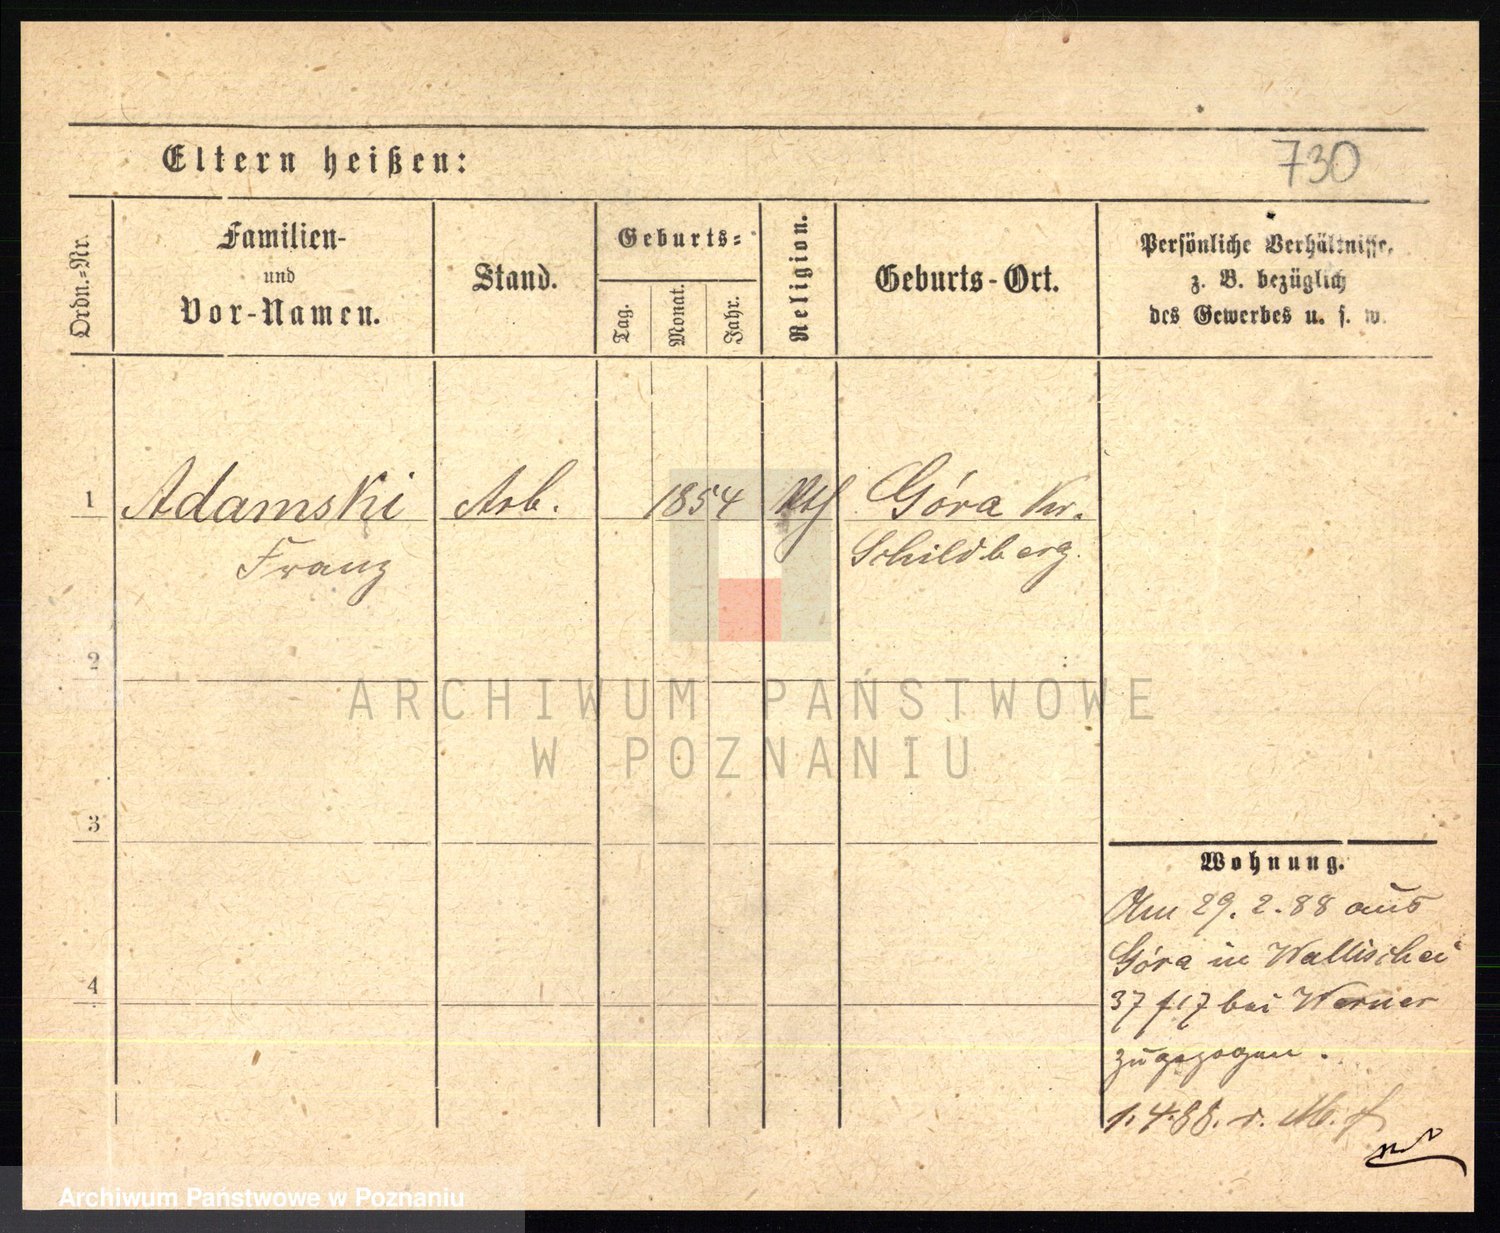 730
Eltern heißen:
Ordn.-Nr.
Familien-
und
Vor-Namen.
Stand.
Geburts-
Tag.
Monat.
Jahr.
Religion.
Geburts-Ort.
Persönliche Verhältnisse,
z. B. bezüglich
des Gewerbes u. s. w.
1
Adamski
Arb.
1854
Kth
Góra Kr.
Franz
Schildberg.
2
ARCHIWUM PAŃSTWOWE
W POZNANIU
3
4
Wohnung.
Am 29. 2. 88 aus
Góra in Wallischei
37 f 17 bei Werner
zugezogen.
1. 4. 88. v. M.
Archiwum Państwowe w Poznaniu